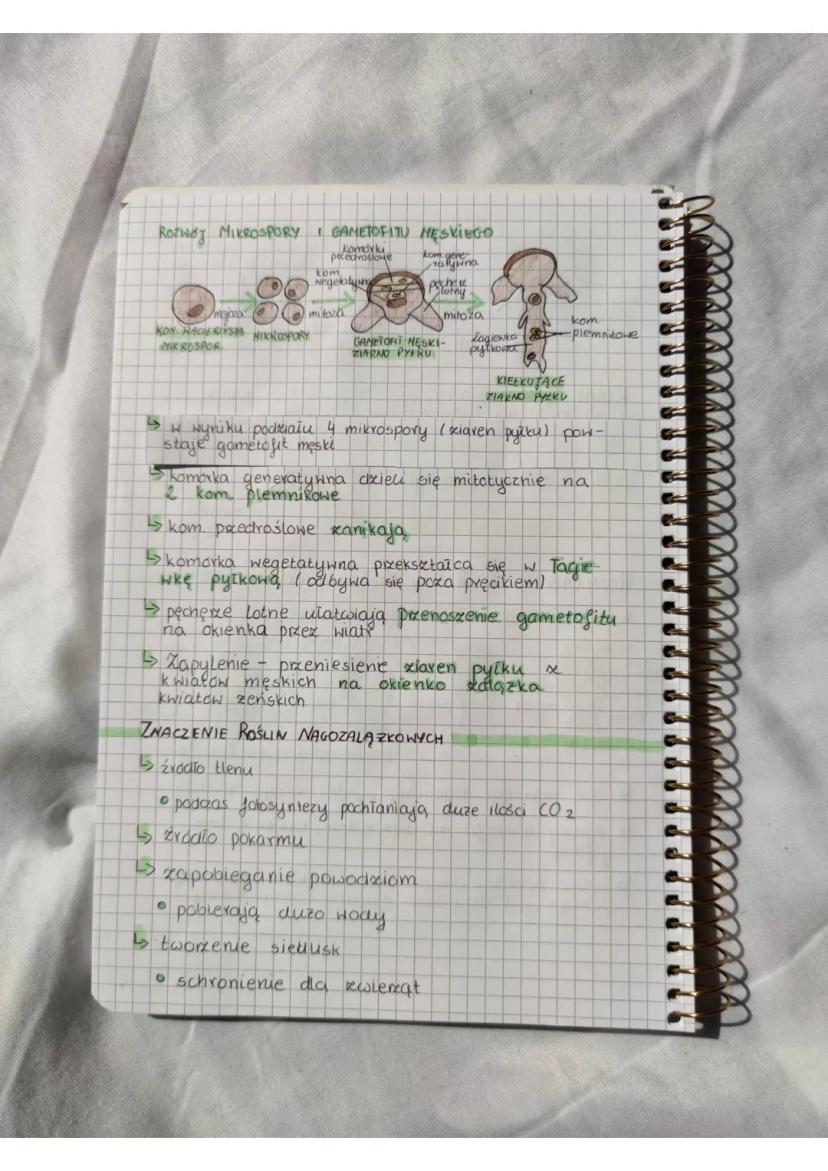 ROZWÓJ MIKROSPORY I GAMETOFITU MĘSKIEGO
komórki
przedroślowe
kom. gene-
ratywna
kom.
wegetatywna
pęcherz
lotny
mejoza
mitoza
mitoza
KOM. MACIERZYSTA
MIKROSPOR
MIKROSPORY
GAMETOFIT MĘSKI-
ZIARNO PYŁKU
łagiewka
pyłkowa
kom.
plemnikowe
KIEŁKUJĄCE
ZIARNO PYŁKU
↳ w wyniku podziału 4 mikrospory (ziaren pyłku) pow-
staje gametofit męski
↳ komórka generatywna dzieli się mitotycznie na
2 kom. plemnikowe
↳ kom. przedroślowe zanikają
↳ komórka wegetatywna przekształca się w łagie-
wkę pyłkową (odbywa się poza pręcikiem)
↳ pęcherze lotne ułatwiają przenoszenie gametofitu
na okienka przez wiatr
↳ Zapylenie - przeniesienie ziaren pyłku z
kwiatów męskich na okienko zalążka
kwiatów żeńskich
ZNACZENIE ROŚLIN NAGOZALĄŻKOWYCH
↳ źródło tlenu
• podczas fotosyntezy pochłaniają duże ilości CO2
↳ źródło pokarmu
↳ zapobieganie powodziom
• pobierają dużo wody
↳ tworzenie siedlisk
• schronienie dla zwierząt